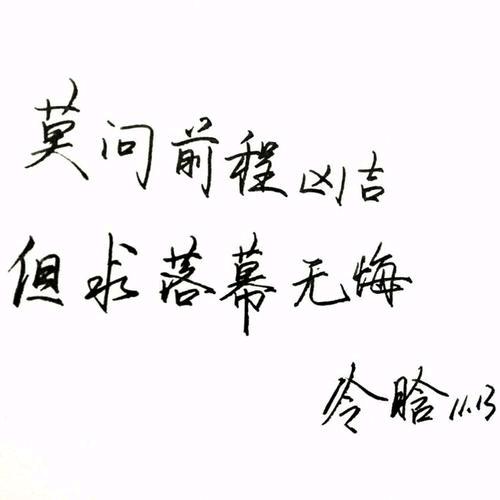 莫问前程凶吉
但求落幕无悔
冷晗 11.13